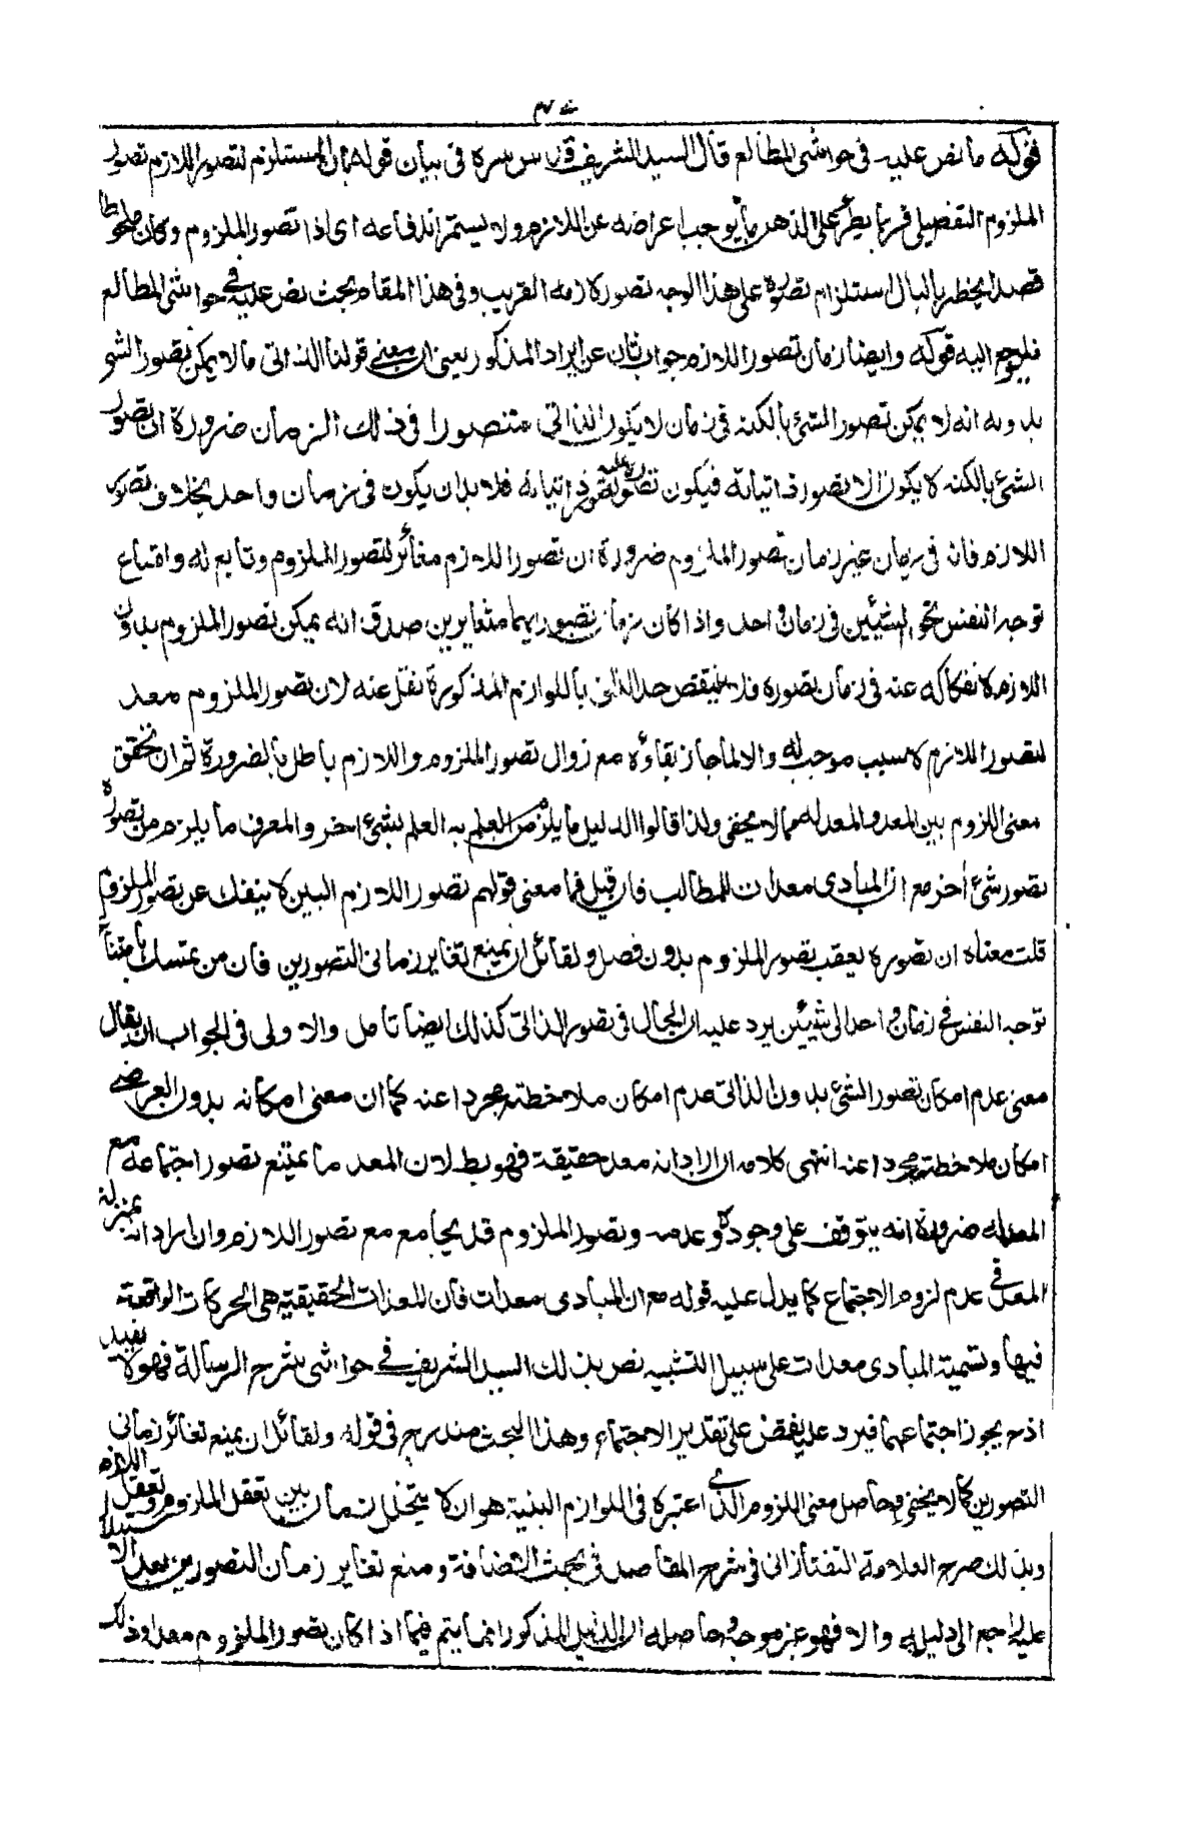 قوله ما نص عليه في حواشي المطالع قال السيد الشريف قدس سره في بيان قوله بان المستلزم لتصور اللازم تصور
الملزوم التفصيلي فربما يطرأ على الذهن ما يوجب اعراضه عن اللازم ولا يستمر اندفاعه اى اذا تصور الملزوم وكان ملحوظا
قصدا يخطر بالبال استلزام تصوره على هذا الوجه تصور لازمه القريب وفي هذا المقام بحث نص عليه في حواشي المطالع
فليرجع اليه قوله وايضا زمان تصور اللازم جواب ثان عن ايراد المذكور يعني ان معنى قولنا الذاتي ما لا يمكن تصور الشئ
بدونه انه لا يمكن تصور الشئ بالكنه في زمان لا يكون الذاتي متصورا في ذلك الزمان ضرورة ان تصور
الشئ بالكنه لا يكون الا بتصور ذاتياته فيكون تصوره بتصور ذاتياته فلا بد ان يكون في زمان واحد بخلاف تصور
اللازم فانه في زمان غير زمان تصور الملزوم ضرورة ان تصور اللازم مغائر لتصور الملزوم وتابع له وامتناع
توجه النفس نحو الشيئين في زمان واحد واذا كان زمان تصوريهما متغايرين صدق انه يمكن تصور الملزوم بدون
اللازم لانفكاكه عنه في زمان تصوره فلا ينتقض حد الذاتي باللوازم المذكورة نقل عنه لان تصور الملزوم معد
لتصور اللازم لا سبب موجب له والا لما جاز بقاؤه مع زوال تصور الملزوم واللازم باطل بالضرورة ثم ان تحقق
معنى اللزوم بين المعد والمعد له مما لا يخفى ولذا قالوا الدليل ما يلزم من العلم به العلم بشئ اخر والمعرف ما يلزم من تصوره
تصور شئ اخر مع ان المبادى معدات للمطالب فان قيل فما معنى قولهم تصور اللازم البين لا ينفك عن تصور الملزوم
قلت معناه ان تصوره يعقب تصور الملزوم بدون فصل ولقائل ان يمنع تغاير زماني التصورين فان من يتمسك بامتناع
توجه النفس في زمان واحد الى شيئين يرد عليه ان الحال في تصور الذاتي كذلك ايضا تامل والاولى في الجواب ان يقال
معنى عدم امكان تصور الشئ بدون الذاتي عدم امكان ملاحظته مجردا عنه كما ان معنى امكانه بدون العرضي
امكان ملاحظته مجردا عنه انتهى كلامه ان اراد انه معد حقيقة فهو بط لان المعد ما يمتنع تصور اجتماعه مع
المعد له ضرورة انه يتوقف على وجوده وعدمه وتصور الملزوم قد يجامع مع تصور اللازم وان اراد انه بمنزلة
المعد في عدم لزوم الاجتماع كما يدل عليه قوله مع ان المبادى معدات فان المعدات الحقيقية هي الحركات الواقعة
فيها وتسمية المبادى معدات على سبيل التشبيه نص بذلك السيد الشريف في حواشي شرح الرسالة فهو لا يفيد
اذ ح يجوز اجتماعهما فيرد عليه نقض على تقدير الاجتماع وهذا البحث مندرج في قوله ولقائل ان يمنع تغائر زماني
التصورين كما لا يخفى وحاصل معنى اللزوم الذي اعتبره في اللوازم البنية هو ان لا يتخلل زمان بين تعقل الملزوم وتعقل اللازم
وبذلك صرح العلامة التفتازاني في شرح المقاصد في بحث التضافة ومنع تغاير زمان التصورين بعد الاستدلال
عليه راجع الى دليله والا فهو غير موجه وحاصله ان الدليل المذكور انما يتم فيما اذا كان تصور الملزوم معدا وذلك